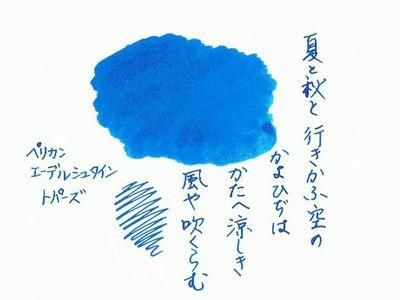 夏と秋と 行きかふ空の
かよひぢは
かたへ涼しき
風や吹くらむ
ペリカン
エーデルシュタイン
トパーズ